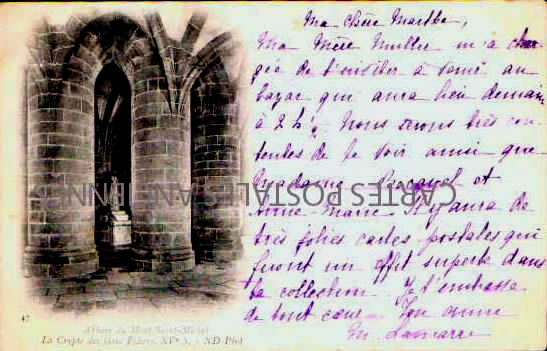 Ma chère Marthe,
Ma Mère Muller m'a char-
gée de t'inviter à venir au
bazar qui aura lieu demain
à 2 h. Nous serons très con-
tentes de te voir ainsi que
Madame et
Anne-Marie. Il y aura de
très jolies cartes postales qui
feront un effet superbe dans
ta collection. Je t'embrasse
de tout cœur. Ton amie
M. Lamarre
CARTES POSTALES ANCIENNES
47
Abbaye du Mont-Saint-Michel
La Crypte des Gros Piliers, XVe S. - ND Phot